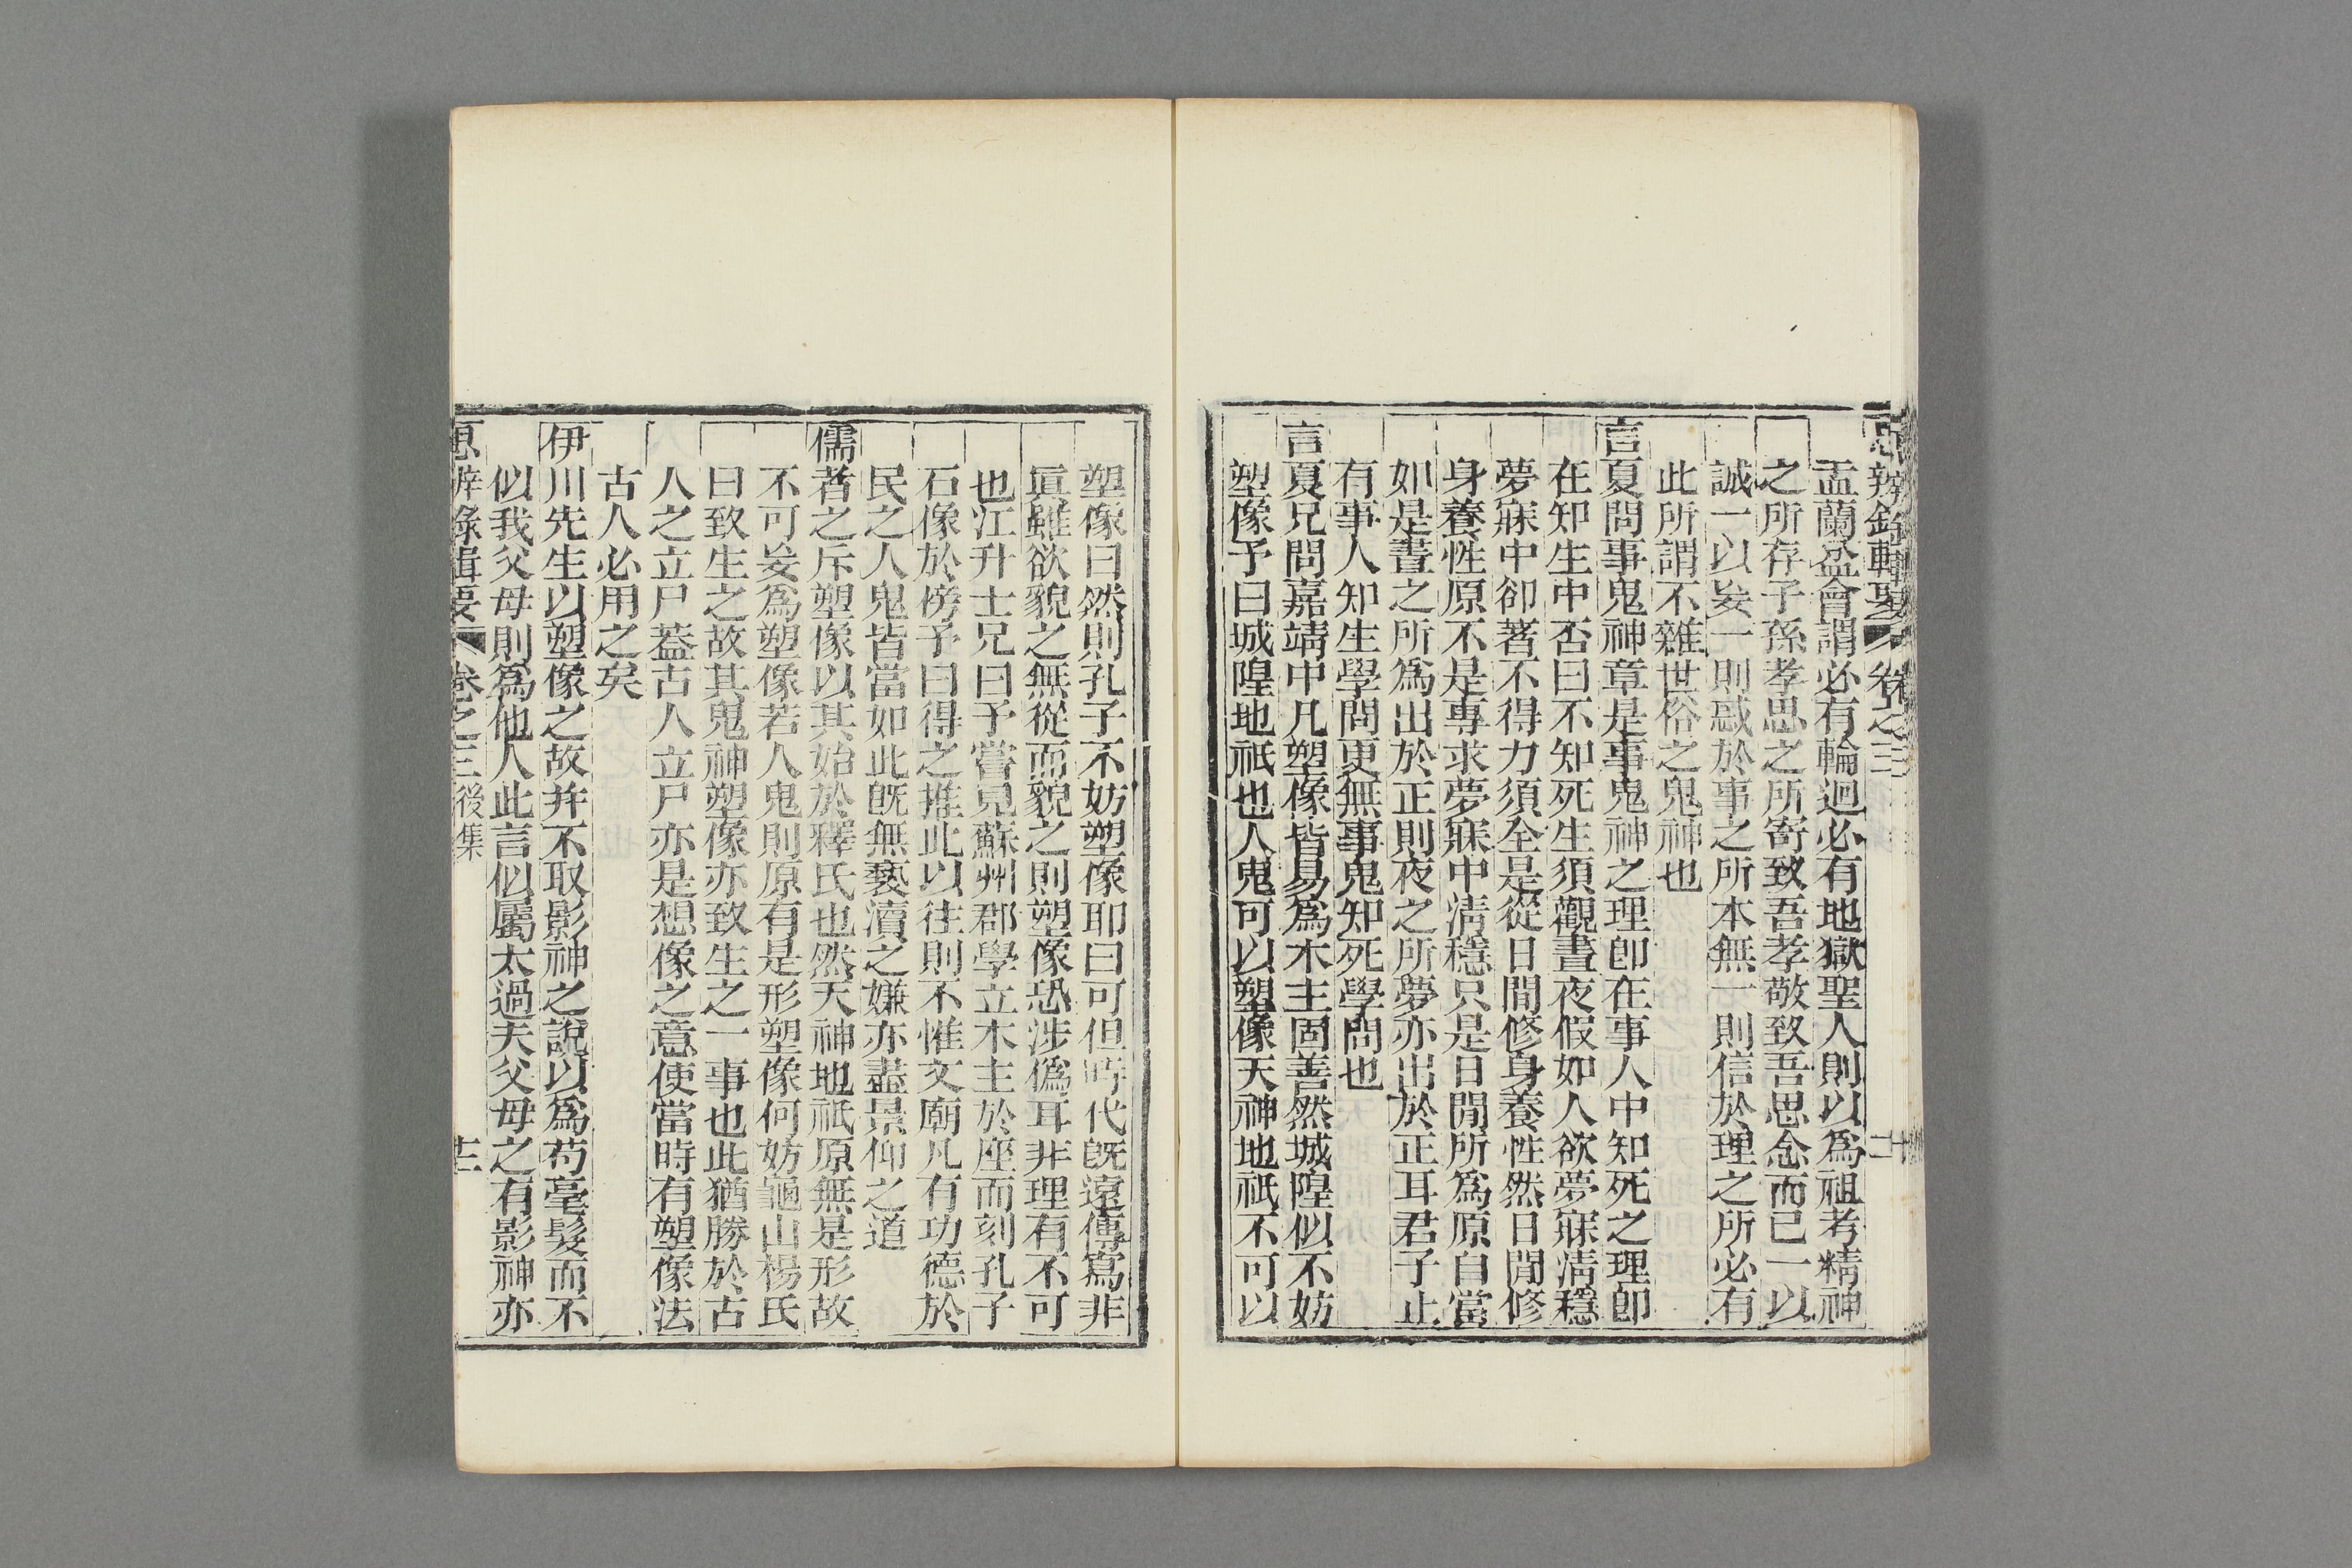 思辨錄輯要 卷之三 十一
盂蘭盆會謂必有輪迴必有地獄聖人則以爲祖考精神
之所存子孫孝思之所寄致吾孝敬致吾思念而已一以
誠一以妄一則惑於事之所本無一則信於理之所必有
此所謂不雜世俗之鬼神也
言夏問事鬼神章是事鬼神之理卽在事人中知死之理卽
在知生中否曰不知死生須觀晝夜假如人欲夢寐淸穩
夢寐中卻著不得力須全是從日間修身養性然日間修
身養性原不是專求夢寐中淸穩只是日閒所爲原自當
如是晝之所爲出於正則夜之所夢亦出於正耳君子止
有事人知生學問更無事鬼知死學問也
言夏兄問嘉靖中凡塑像皆易爲木主固善然城隍似不妨
塑像予曰城隍地祇也人鬼可以塑像天神地祇不可以
塑像曰然則孔子不妨塑像耶曰可但時代旣遠傳寫非
眞雖欲貌之無從而貌之則塑像恐涉僞耳非理有不可
也江升士兄曰予嘗見蘇州郡學立木主於座而刻孔子
石像於傍予曰得之推此以往則不惟文廟凡有功德於
民之人鬼皆當如此旣無褻瀆之嫌亦盡景仰之道
儒者之斥塑像以其始於釋氏也然天神地祇原無是形故
不可妄爲塑像若人鬼則原有是形塑像何妨龜山楊氏
曰致生之故其鬼神塑像亦致生之一事也此猶勝於古
人之立尸葢古人立尸亦是想像之意使當時有塑像法
古人必用之矣
伊川先生以塑像之故并不取影神之說以爲苟毫髮而不
似我父母則爲他人此言似屬太過夫父母之有影神亦
思辨錄輯要 卷之三後集